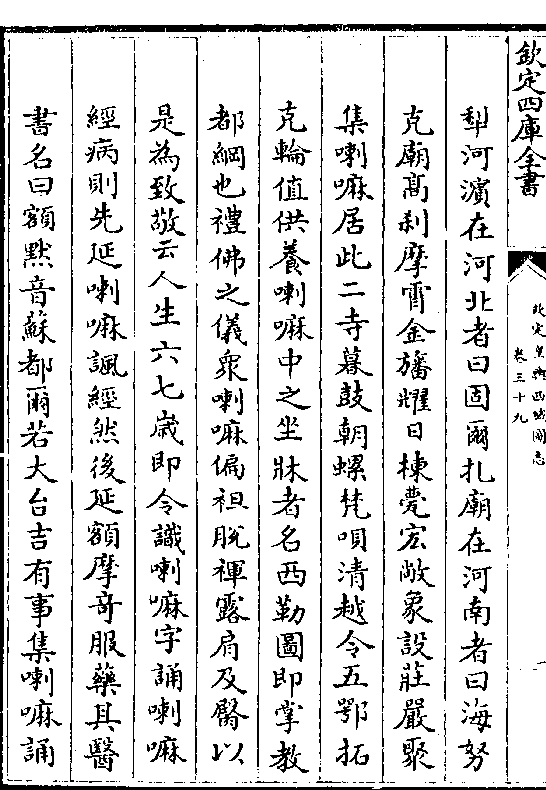 欽定四庫全書
欽定皇輿西域圖志
卷三十九
犁河濵在河北者曰固爾扎廟在河南者曰海努
克廟髙刹摩霄金旛耀日棟甍宏敞象設莊嚴聚
集喇嘛居此二寺暮鼓朝螺梵唄清越令五鄂拓
克輪值供養喇嘛中之坐牀者名西勒圖即掌教
都綱也禮佛之儀衆喇嘛偏袒脱襌露肩及臋以
是為致敬云人生六七歳即令識喇嘛字誦喇嘛
經病則先延喇嘛諷經然後延額摩竒服藥其醫
書名曰額黙音蘇都爾若大台吉有事集喇嘛誦